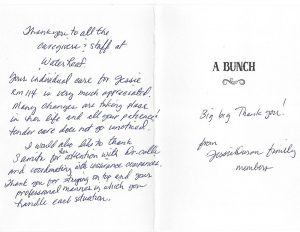 Thank you to all the
caregivers & staff at
Waterleaf
Your individual care for Jessie
RM 114 is very much appreciated.
Many changes are taking place
in her life and all your patience &
tender care does not go unnoticed.
I would also like to thank
for her attention with Dr. calls
and coordinating with insurance companies.
Thank you for staying on top and your
professional manner in which you
handle each situation.
A BUNCH
Big big Thank you!
from
Jessie family
members